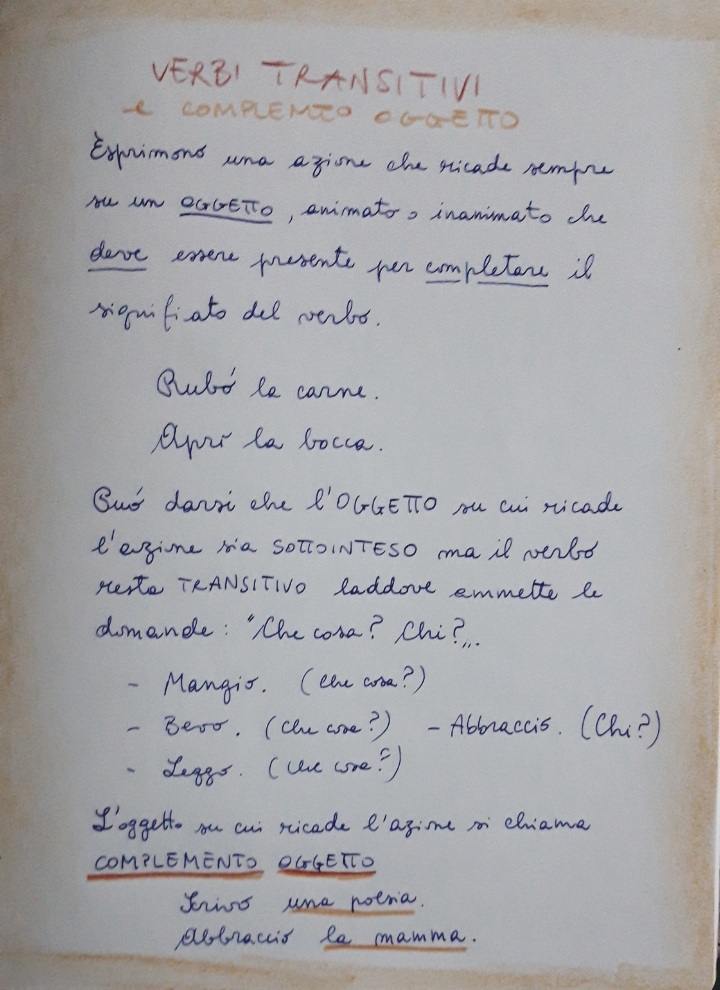 VERBI TRANSITIVI
e COMPLEMTO OGGETTO
Esprimono una azione che ricade sempre
su un OGGETTO, animato o inanimato che
deve essere presente per completare il
signifiato del verbo.
Rubó la carne.
Aprí la bocca.
Puó darsi che l'OGGETTO su cui ricade
l'azione sia SOTTOINTESO ma il verbo
resta TRANSITIVO laddove ammette le
domande: "Che cosa? Chi?„.
- Mangio. (Che cosa?)
- Bevo. (Che cosa?) - Abbraccio. (Chi?)
- Leggo. (Che cosa?)
L'oggetto su cui ricade l'azione si chiama
COMPLEMENTO OGGETTO
Scrivo una poesia.
Abbraccio la mamma.